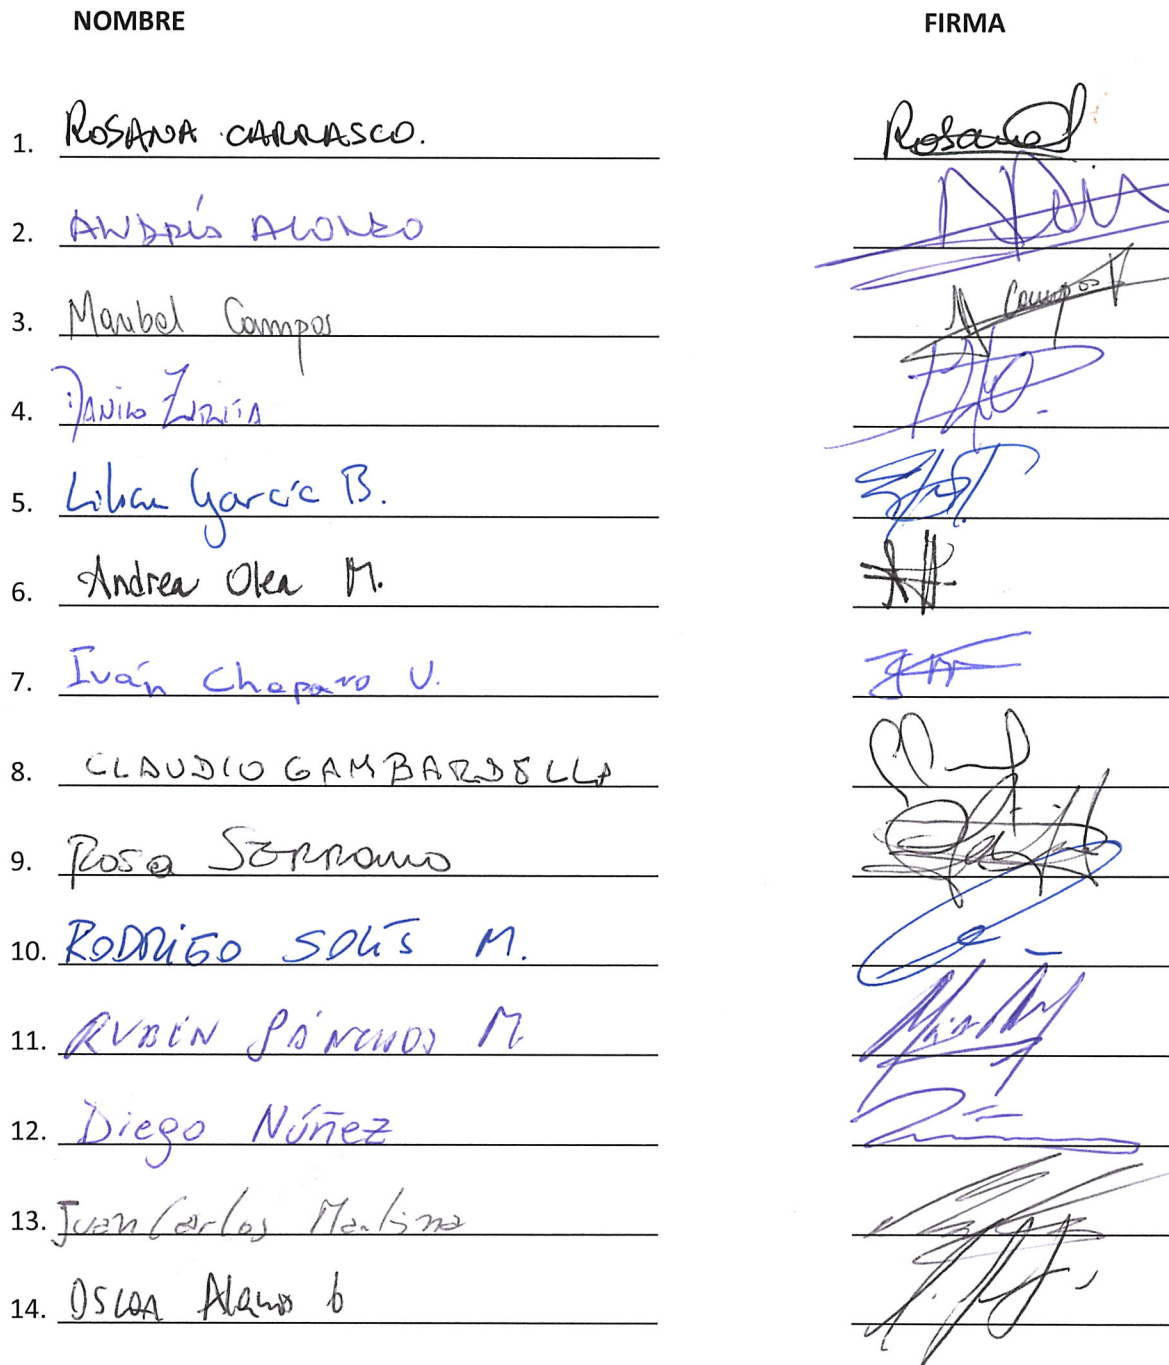 NOMBRE FIRMA
1. ROSANA CARRASCO. Rosana
2. ANDRÉS ALONZO
3. Maribel Campos Campos
4. DANILO ZURITA
5. Lilian García B.
6. Andrea Olea M.
7. Iván Chaparro V.
8. CLAUDIO GAMBARDELLA
9. Rosa SERRANO
10. RODRIGO SOLÍS M.
11. RUBÉN SÁNCHEZ M
12. Diego Núñez
13. Juan Carlos
14. OSCAR Alamos